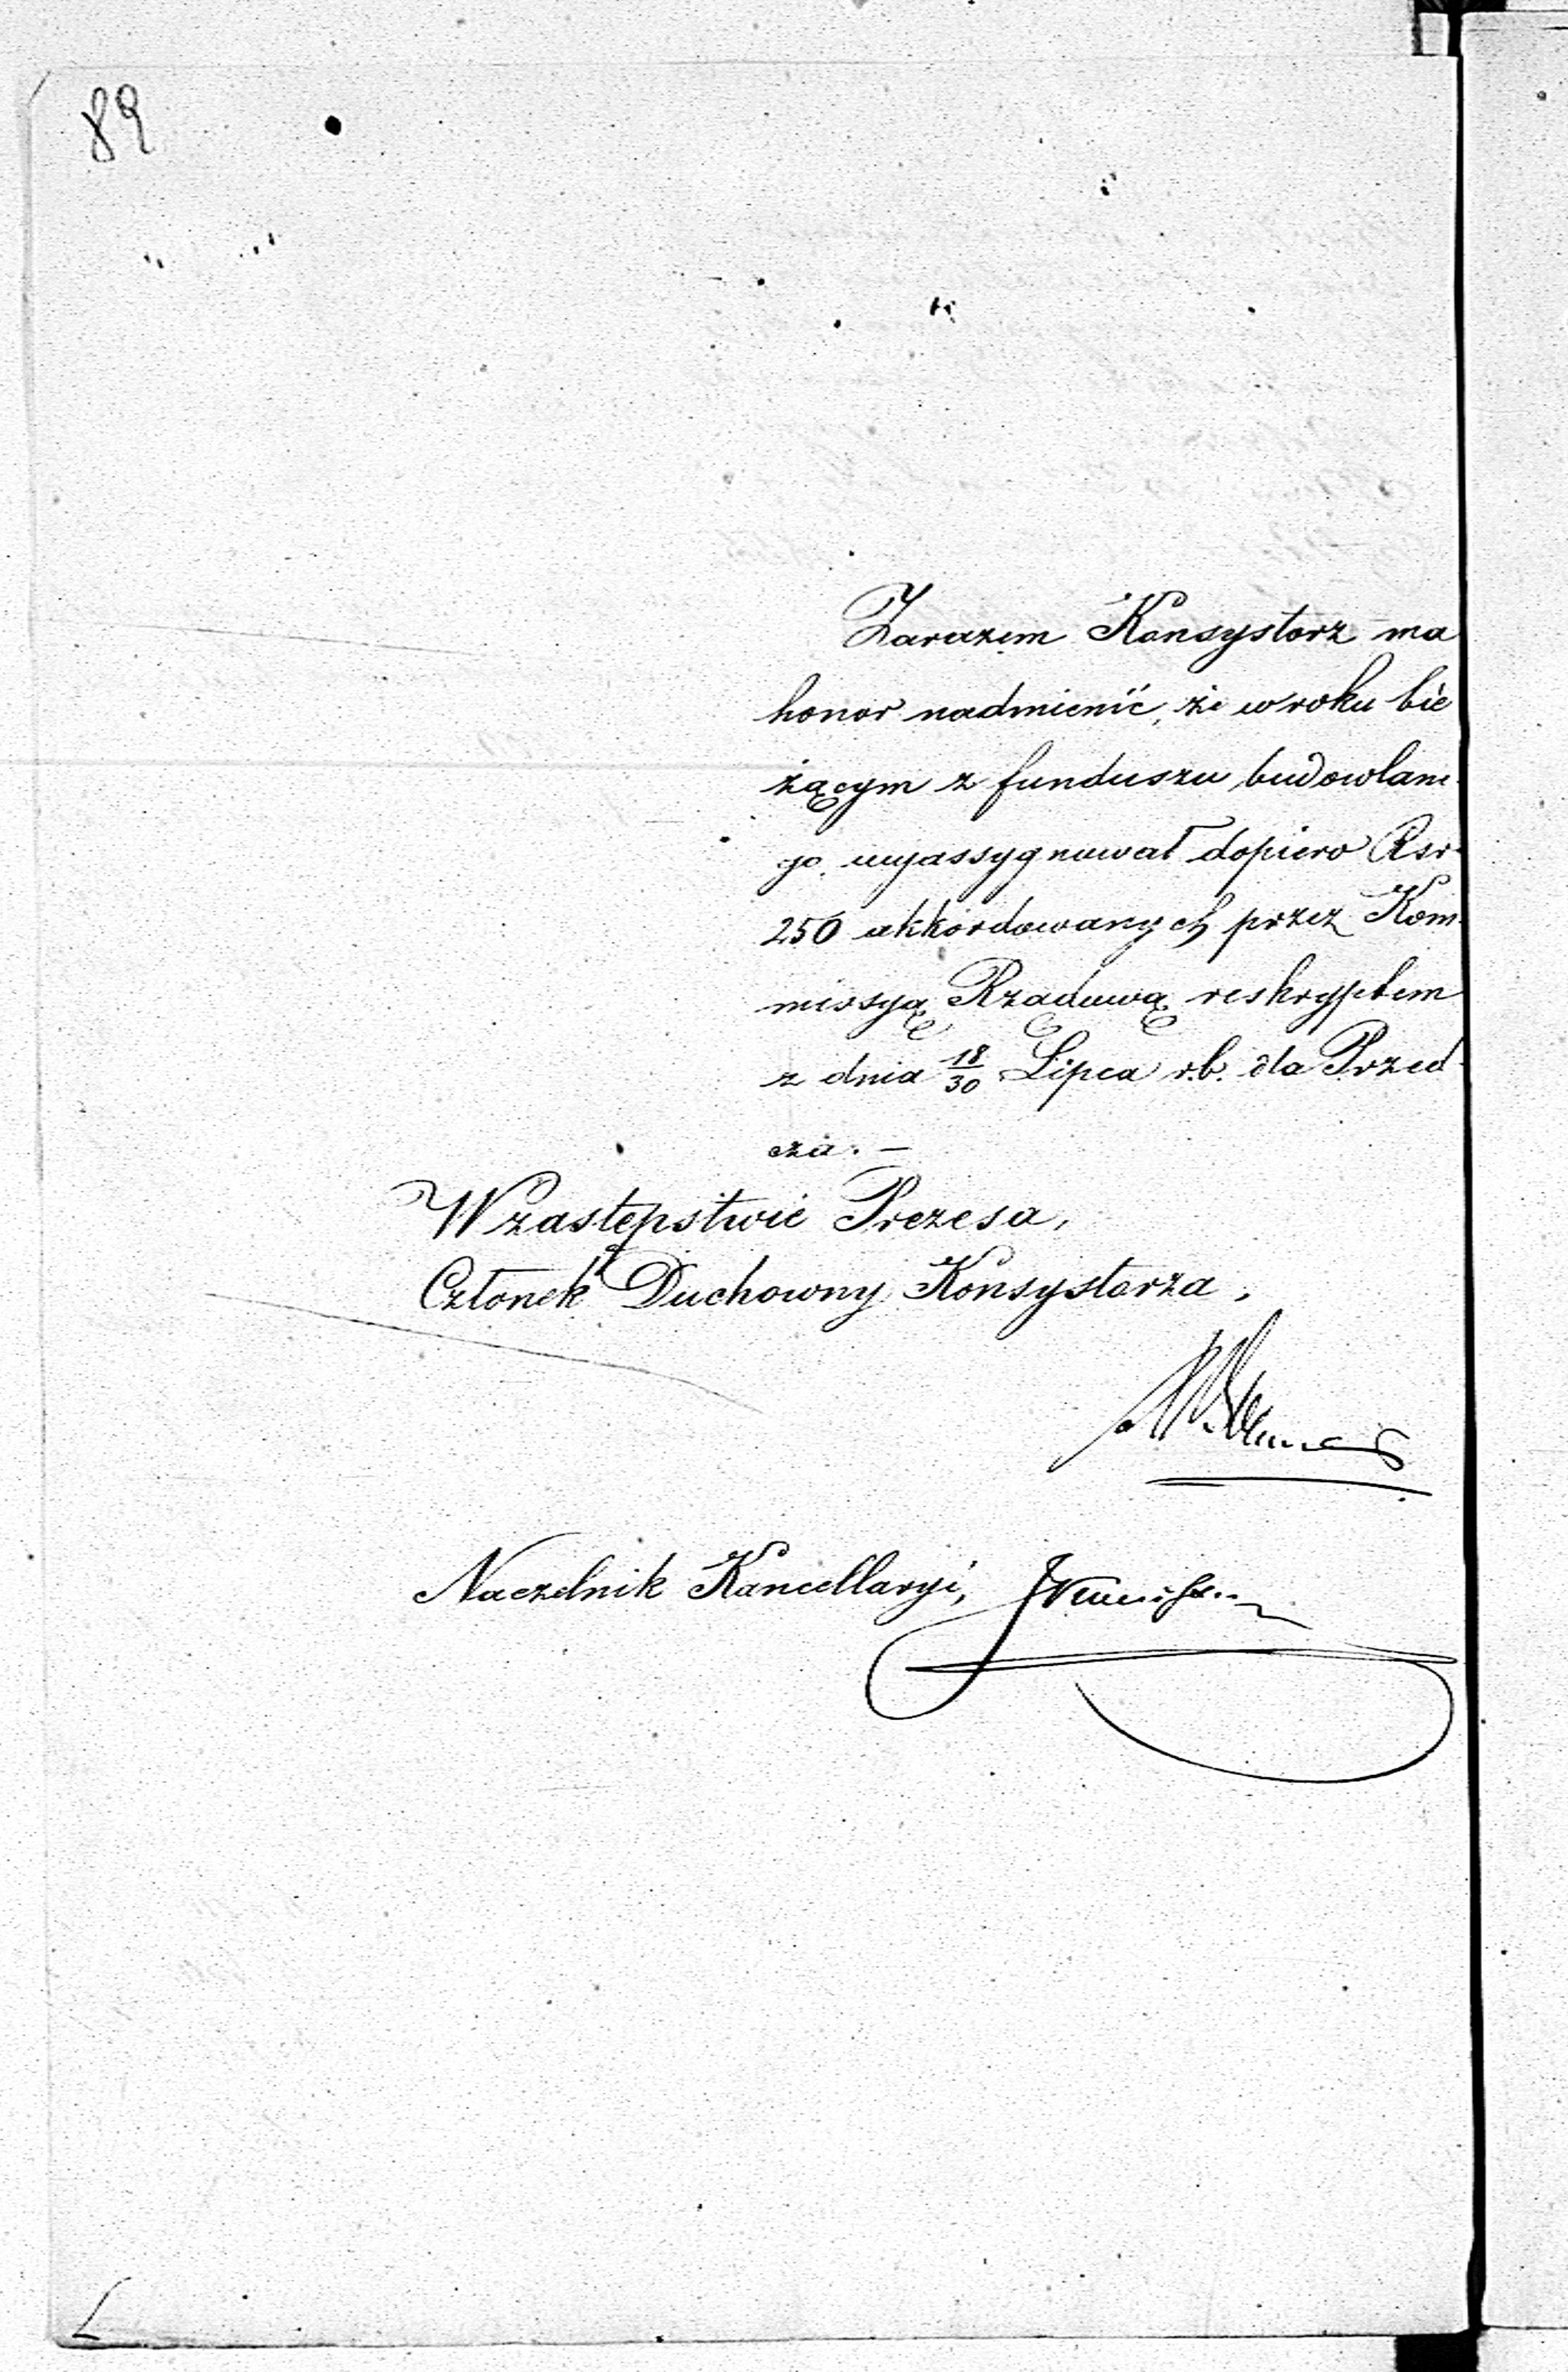 89
Zarazem Konsystorz ma
honor nadmienić, że w roku bie
żącym z funduszu budowlane
go wyassygnował dopiero Rsr
250 akkordowanych przez Kom
missyą Rządową reskryptem
z dnia 18/30 Lipca r.b. dla Przed
cza. —
W zastępstwie Prezesa,
Członek Duchowny Konsystorza,
Naczelnik Kancellaryi,